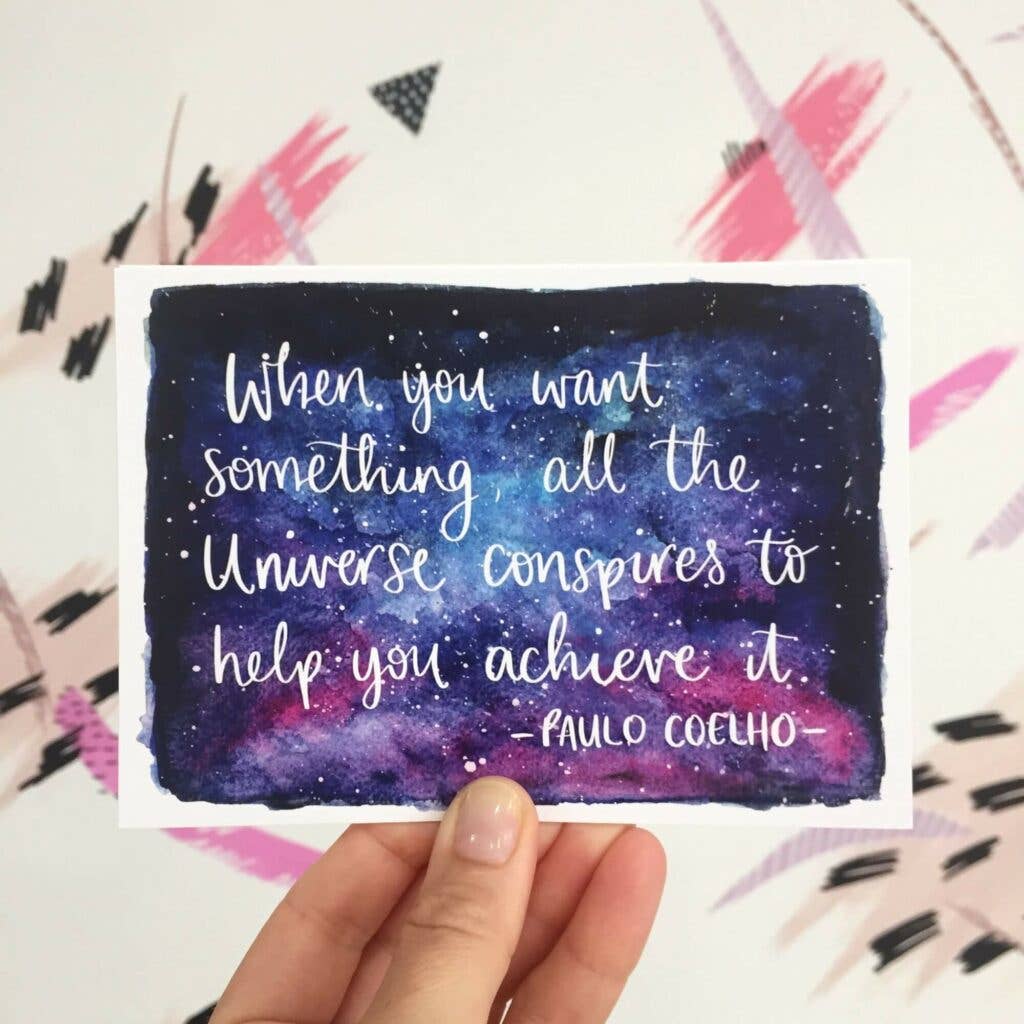 When you want
something, all the
Universe conspires to
help you achieve it.
- PAULO COELHO -